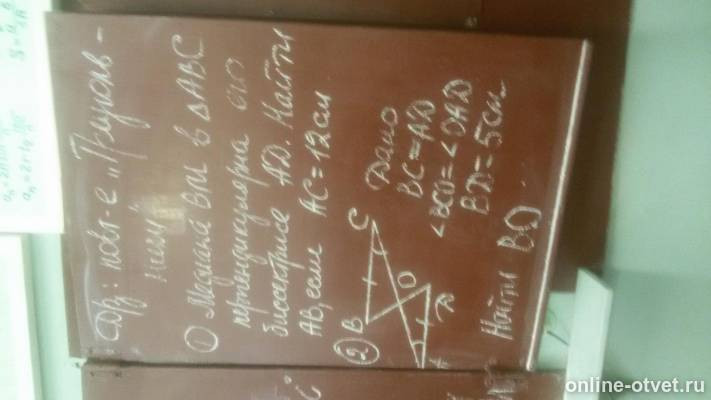 Др: повт-е „Треуголь-
ники"
① Медиана ВМ в △ABC
перпендикулярна его
биссектрисе AD. Найти
AB, если AC=12см
② B C O A D
Дано
BC=AD
∠BCO=∠OAD
BD=5см
Найти BO
online-otvet.ru